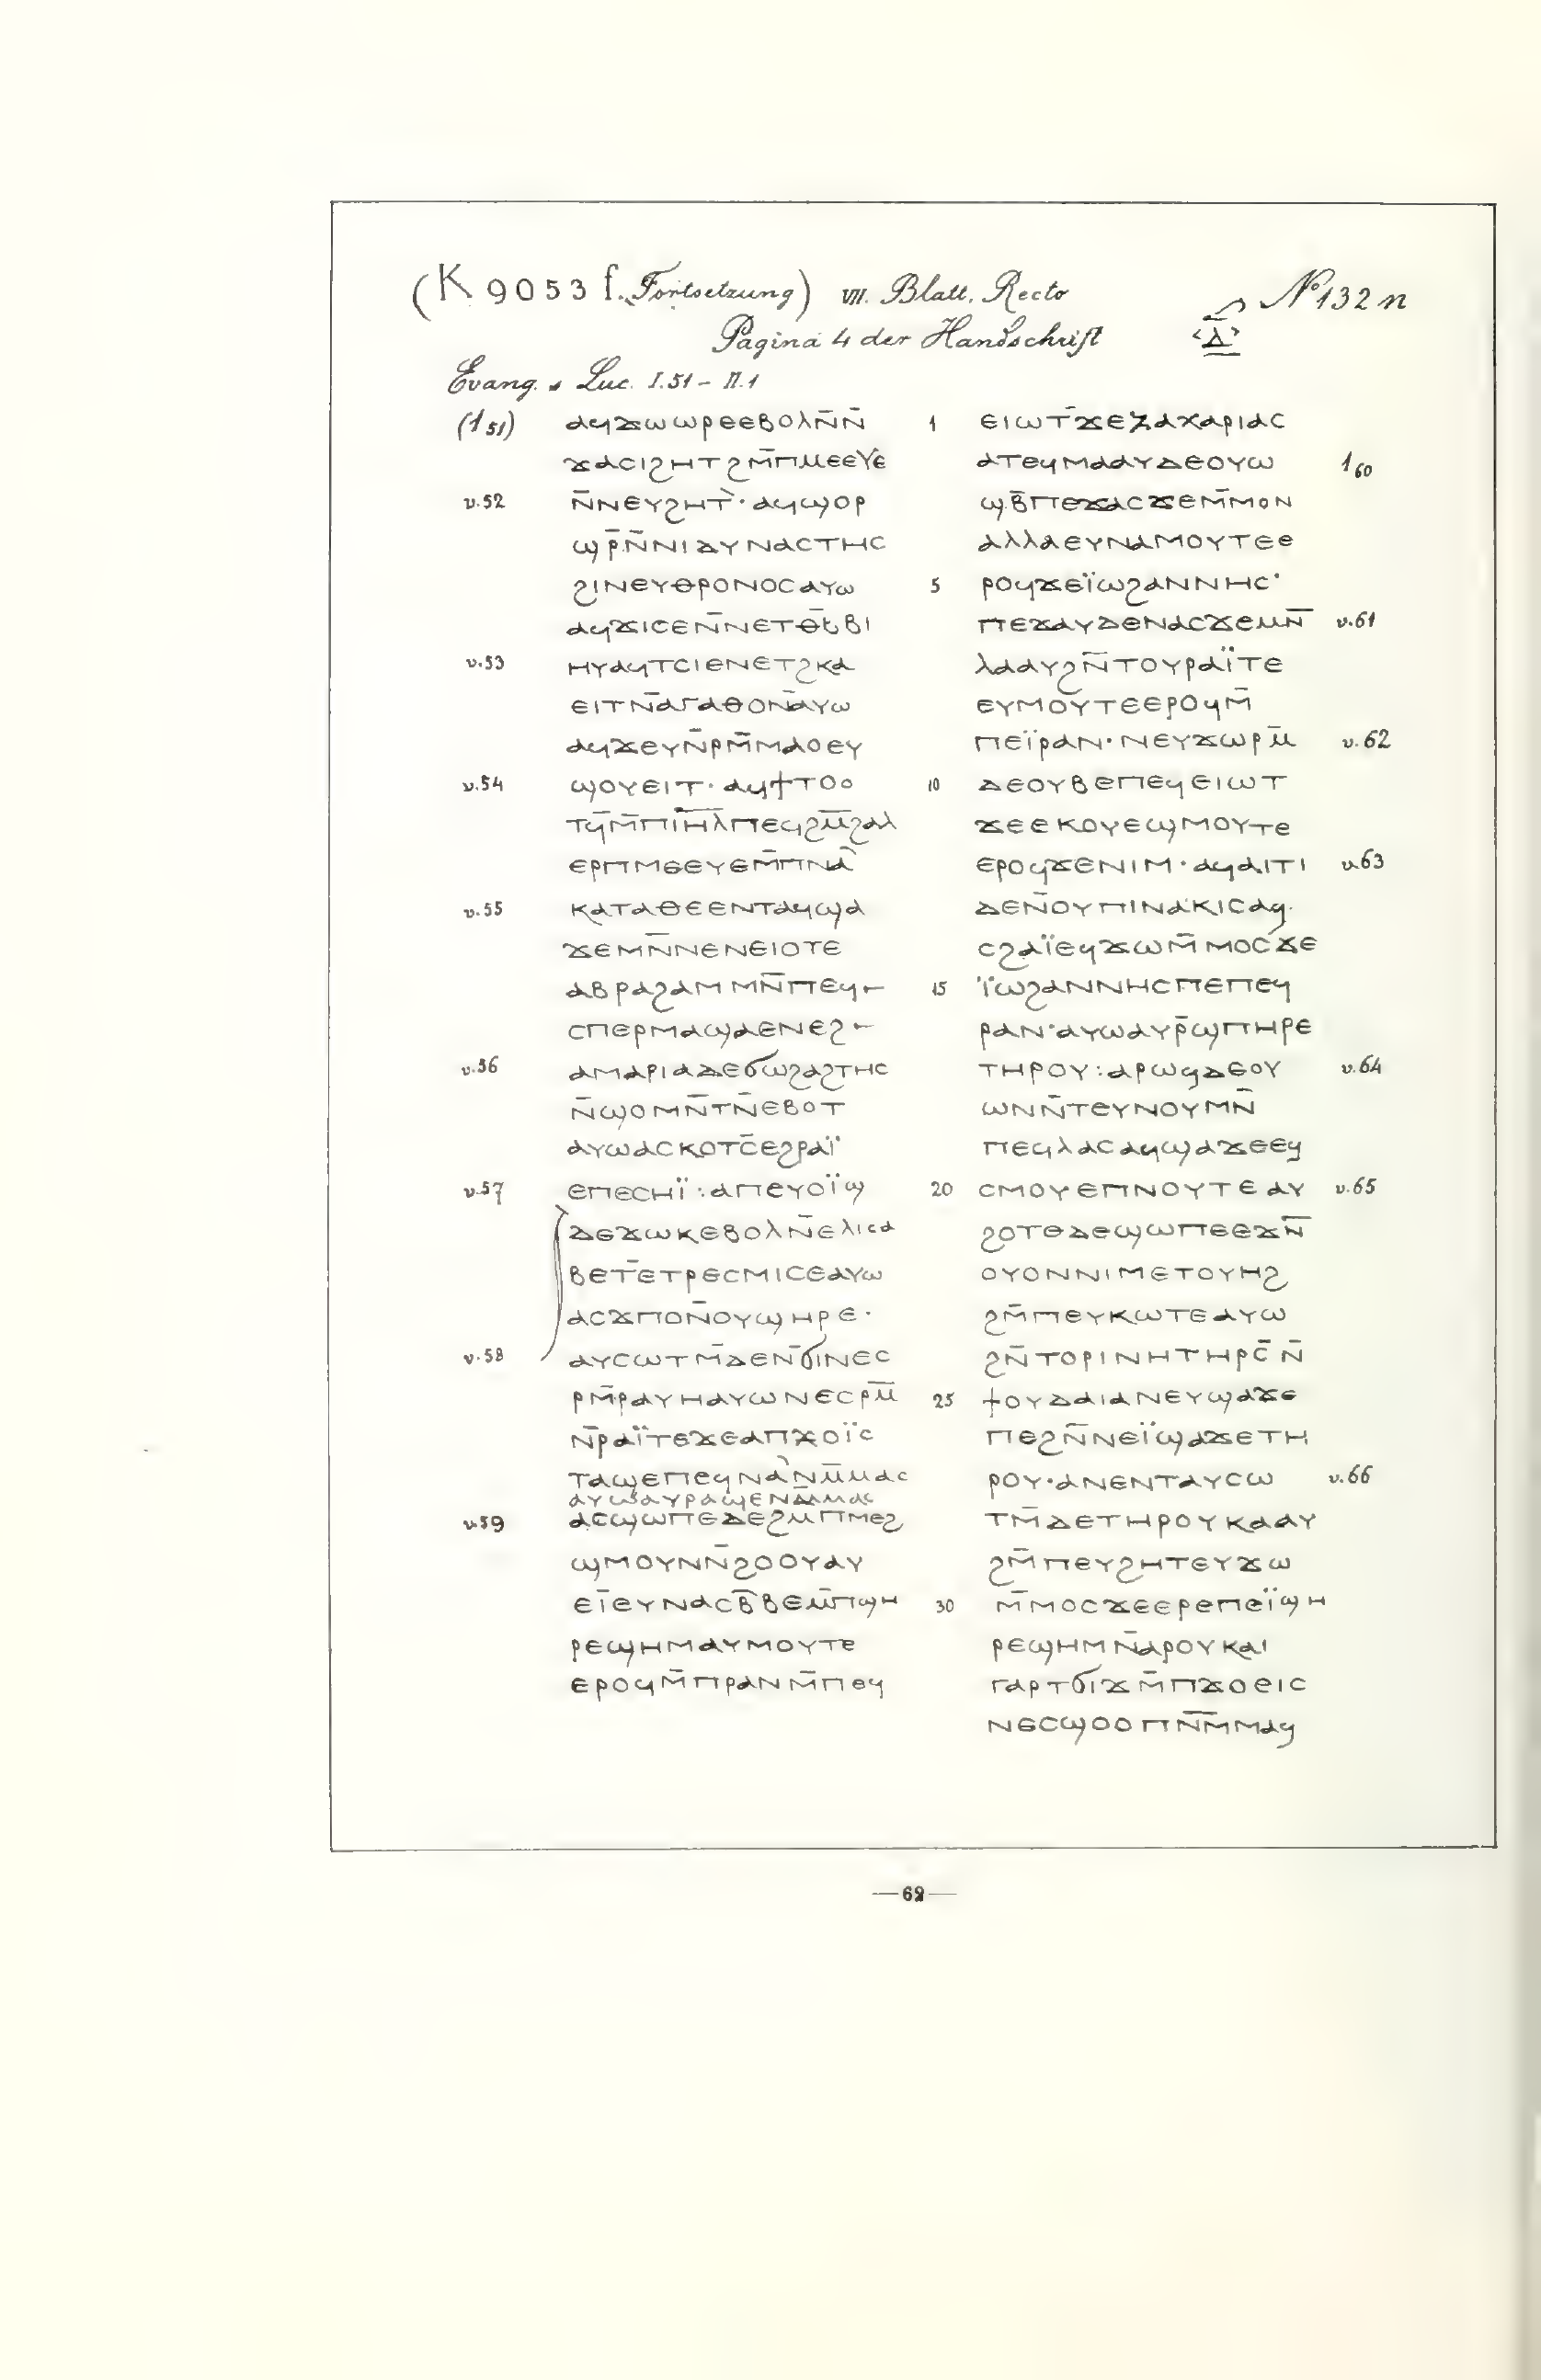 (K 9053 f. Fortsetzung) VII. Blatt. Recto
N° 132 n
Pagina 4 der Handschrift
<ⲇ̅>
Evang. s. Luc. I.51 – II.1
(1 51) ⲁϥϫⲱⲱⲣⲉⲉⲃⲟⲗⲛ̄ⲛ̄
ϫⲁⲥⲓϩⲏⲧϩⲙ̄ⲡⲙⲉⲉⲩⲉ
v.52 ⲛ̄ⲛⲉⲩϩⲏⲧ̀· ⲁϥϣⲟⲣ
ϣⲣ̄ⲛ̄ⲛⲓⲇⲩⲛⲁⲥⲧⲏⲥ
ϩⲓⲛⲉⲩⲑⲣⲟⲛⲟⲥⲁⲩⲱ
ⲁϥϫⲓⲥⲉⲛ̄ⲛⲉⲧⲑⲃ̄ⲃⲓ
v.53 ⲏⲩⲁϥⲧⲥⲓⲉⲛⲉⲧϩⲕⲁ
ⲉⲓⲧⲛ̄ⲁⲅⲁⲑⲟⲛⲁⲩⲱ
ⲁϥϫⲉⲩⲛ̄ⲣⲙ̄ⲙⲁⲟⲉⲩ
v.54 ϣⲟⲩⲉⲓⲧ· ⲁϥϯⲧⲟⲟ
ⲧϥ̄ⲙ̄ⲡⲓ̅ⲏ̅ⲗ̅ⲡⲉϥϩⲙ̅ϩⲁⲗ
ⲉⲣⲡⲙⲉⲉⲩⲉⲙ̄ⲡⲛⲁ̀
v.55 ⲕⲁⲧⲁⲑⲉⲉⲛⲧⲁϥϣⲁ
ϫⲉⲙⲛ̄ⲛⲉⲛⲉⲓⲟⲧⲉ
ⲁⲃⲣⲁϩⲁⲙⲙⲛ̄ⲡⲉϥ
ⲥⲡⲉⲣⲙⲁϣⲁⲉⲛⲉϩ
v.56 ⲁⲙⲁⲣⲓⲁⲇⲉϭⲱϩⲁϩⲧⲏⲥ
ⲛ̄ϣⲟⲙⲛ̄ⲧⲛ̄ⲉⲃⲟⲧ
ⲁⲩⲱⲁⲥⲕⲟⲧⲥ̄ⲉϩⲣⲁⲓ̈
v.57 ⲉⲡⲉⲥⲏⲓ̈: ⲁⲡⲉⲩⲟⲓ̈ϣ
ⲇⲉϫⲱⲕⲉⲃⲟⲗⲛ̄ⲉⲗⲓⲥⲁ
ⲃⲉⲧⲉⲧⲣⲉⲥⲙⲓⲥⲉⲁⲩⲱ
ⲁⲥϫⲡⲟⲛ̄ⲟⲩϣⲏⲣⲉ·
v.58 ⲁⲩⲥⲱⲧⲙ̄ⲇⲉⲛ̄ϭⲓⲛⲉⲥ
ⲣⲙ̄ⲣⲁⲩⲏⲁⲩⲱⲛⲉⲥⲣⲙ̅
ⲛ̄ⲣⲁⲓ̈ⲧⲉϫⲉⲁⲡϫⲟⲓ̈ⲥ
ⲧⲁϣⲉⲡⲉϥⲛⲁ̀ⲛⲙ̅ⲙⲁⲥ
ⲁⲩⲱⲁⲩⲣⲁϣⲉⲛⲙ̅ⲙⲁⲥ
v.59 ⲁⲥϣⲱⲡⲉⲇⲉϩⲙ̄ⲡⲙⲉϩ
ϣⲙⲟⲩⲛⲛ̄ϩⲟⲟⲩⲁⲩ
ⲉⲓ̄ⲉⲩⲛⲁⲥⲃ̄ⲃⲉⲙ̄ⲡϣⲏ
ⲣⲉϣⲏⲙⲁⲩⲙⲟⲩⲧⲉ
ⲉⲣⲟϥⲙ̄ⲡⲣⲁⲛⲙ̄ⲡⲉϥ
1 ⲉⲓⲱⲧϫⲉⲍⲁⲭⲁⲣⲓⲁⲥ
ⲁⲧⲉϥⲙⲁⲁⲩⲇⲉⲟⲩⲱ 1 60
ϣⲃ̄ⲡⲉϫⲁⲥϫⲉⲙ̄ⲙⲟⲛ
ⲁⲗⲗⲁⲉⲩⲛⲁⲙⲟⲩⲧⲉⲉ
5 ⲣⲟϥϫⲉⲓ̈ⲱϩⲁⲛⲛⲏⲥ·
ⲡⲉϫⲁⲩⲇⲉⲛⲁⲥϫⲉⲙⲛ̅ v.61
ⲗⲁⲁⲩϩⲛ̄ⲧⲟⲩⲣⲁⲓ̈ⲧⲉ
ⲉⲩⲙⲟⲩⲧⲉⲉⲣⲟϥⲙ̄
ⲡⲉⲓ̈ⲣⲁⲛ· ⲛⲉⲩϫⲱⲣⲙ̅ v.62
10 ⲇⲉⲟⲩⲃⲉⲡⲉϥⲉⲓⲱⲧ
ϫⲉⲉⲕⲟⲩⲉϣⲙⲟⲩⲧⲉ
ⲉⲣⲟϥϫⲉⲛⲓⲙ· ⲁϥⲁⲓⲧⲓ v.63
ⲇⲉⲛ̄ⲟⲩⲡⲓⲛⲁⲕⲓⲥⲁϥ
ⲥϩⲁⲓ̈ⲉϥϫⲱⲙ̄ⲙⲟⲥϫⲉ
15 ⲓ̈ⲱϩⲁⲛⲛⲏⲥⲡⲉⲡⲉϥ
ⲣⲁⲛ·ⲁⲩⲱⲁⲩⲣ̄ϣⲡⲏⲣⲉ
ⲧⲏⲣⲟⲩ:ⲁⲣⲱϥⲇⲉⲟⲩ v.64
ⲱⲛⲛ̄ⲧⲉⲩⲛⲟⲩⲙⲛ̄
ⲡⲉϥⲗⲁⲥⲁϥϣⲁϫⲉⲉϥ
20 ⲥⲙⲟⲩⲉⲡⲛⲟⲩⲧⲉⲁⲩ v.65
ϩⲟⲧⲉⲇⲉϣⲱⲡⲉⲉϫⲛ̅
ⲟⲩⲟⲛⲛⲓⲙⲉⲧⲟⲩⲏϩ
ϩⲙ̄ⲡⲉⲩⲕⲱⲧⲉⲁⲩⲱ
ϩⲛ̄ⲧⲟⲣⲓⲛⲏⲧⲏⲣⲥ̄ⲛ̄
25 ϯⲟⲩⲇⲁⲓⲁⲛⲉⲩϣⲁϫⲉ
ⲡⲉϩⲛ̄ⲛⲉⲓ̈ϣⲁϫⲉⲧⲏ
ⲣⲟⲩ·ⲁⲛⲉⲛⲧⲁⲩⲥⲱ v.66
ⲧⲙ̄ⲇⲉⲧⲏⲣⲟⲩⲕⲁⲁⲩ
ϩⲙ̄ⲡⲉⲩϩⲏⲧⲉⲩϫⲱ
30 ⲙ̄ⲙⲟⲥϫⲉⲉⲣⲉⲡⲉⲓ̈ϣⲏ
ⲣⲉϣⲏⲙⲛ̄ⲁⲣⲟⲩⲕⲁⲓ
ⲅⲁⲣⲧϭⲓϫⲙ̄ⲡϫⲟⲉⲓⲥ
ⲛⲉⲥϣⲟⲟⲡⲛ̅ⲙ̅ⲙⲁϥ
—62—